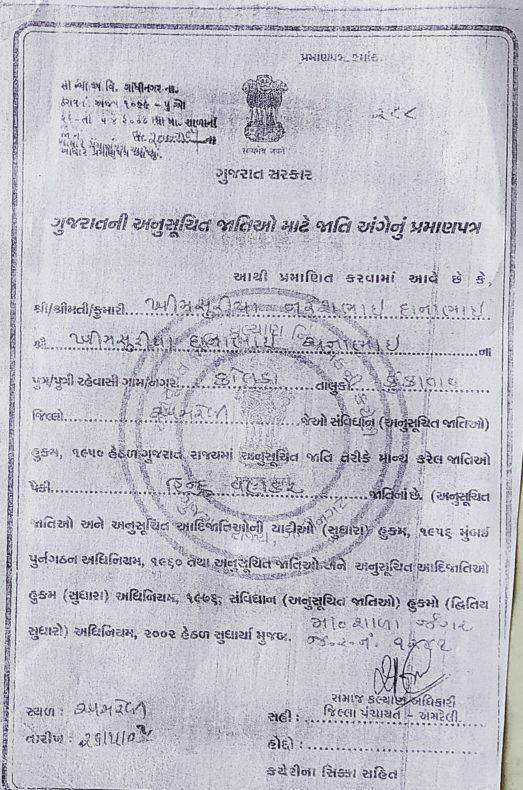 પ્રમાણપત્ર ક્રમાંક.
સા ન્યા અ વિ. ગાંધીનગર ના.
૨૬૮
ગુજરાત સરકાર
ગુજરાતની અનુસૂચિત જાતિઓ માટે જાતિ અંગેનું પ્રમાણપત્ર
આથી પ્રમાણિત કરવામાં આવે છે કે,
શ્રી/શ્રીમતી/કુમારી ખીમસુરીયા નરેશભાઇ દાનાભાઇ
શ્રી ખીમસુરીયા દાનાભાઇ ના
પુત્ર/પુત્રી રહેવાસી ગામ/નગર તાલુકો કુંકાવાવ
જિલ્લો અમરેલી જેઓ સંવિધાન (અનુસૂચિત જાતિઓ)
હુકમ, ૧૯૫૦ હેઠળ ગુજરાત રાજ્યમાં અનુસૂચિત જાતિ તરીકે માન્ય કરેલ જાતિઓ
પૈકી હિન્દુ વણકર જાતિનો છે. (અનુસૂચિત
જાતિઓ અને અનુસૂચિત આદિજાતિઓની યાદીઓ (સુધારા) હુકમ, ૧૯૫૬ મુંબઇ
પુર્નગઠન અધિનિયમ, ૧૯૬૦ તથા અનુસૂચિત જાતિઓ અને અનુસૂચિત આદિજાતિઓ
હુકમ (સુધારા) અધિનિયમ, ૧૯૭૬; સંવિધાન (અનુસૂચિત જાતિઓ) હુકમો (દ્વિતિય
સુધારો) અધિનિયમ, ૨૦૦૨ હેઠળ સુધાર્યા મુજબ.
જ.ર.નં.
સમાજ કલ્યાણ અધિકારી
સ્થળ : અમરેલી
જિલ્લા પંચાયત - અમરેલી
સહી :
તારીખ :
હોદ્દો :
કચેરીના સિક્કા સહિત